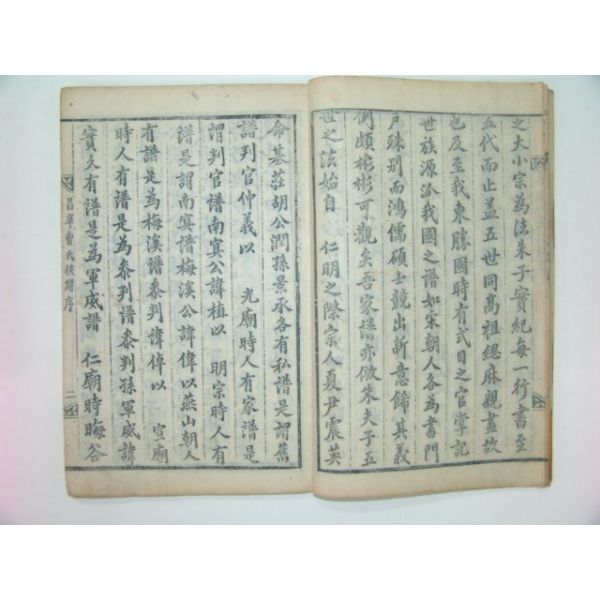 之大小宗為法朱子實紀每一行書至
五代而止盖五世同高祖緦麻親盡故
也及至我東勝國時有式目之官掌記
世族源派我國之譜如宋朝人各為書門
戶殊別而鴻儒碩士競出新意歸其義
例頗彬彬可觀矣吾家譜亦倣朱夫子五
世之法始自 仁明之際宗人夏尹震英
命基莊胡公潤孫景承各有私譜是謂舊
譜判官仲義以 光廟時人有家譜是
謂判官譜南㝠公諱植以 明宗時人有
譜是謂南㝠譜梅溪公諱偉以燕山朝人
有譜是為梅溪譜叅判諱倬以 宣廟
時人有譜是為叅判譜叅判孫軍威諱
實久有譜是為軍威譜 仁廟時晦谷
昌寧曺氏族譜序 二